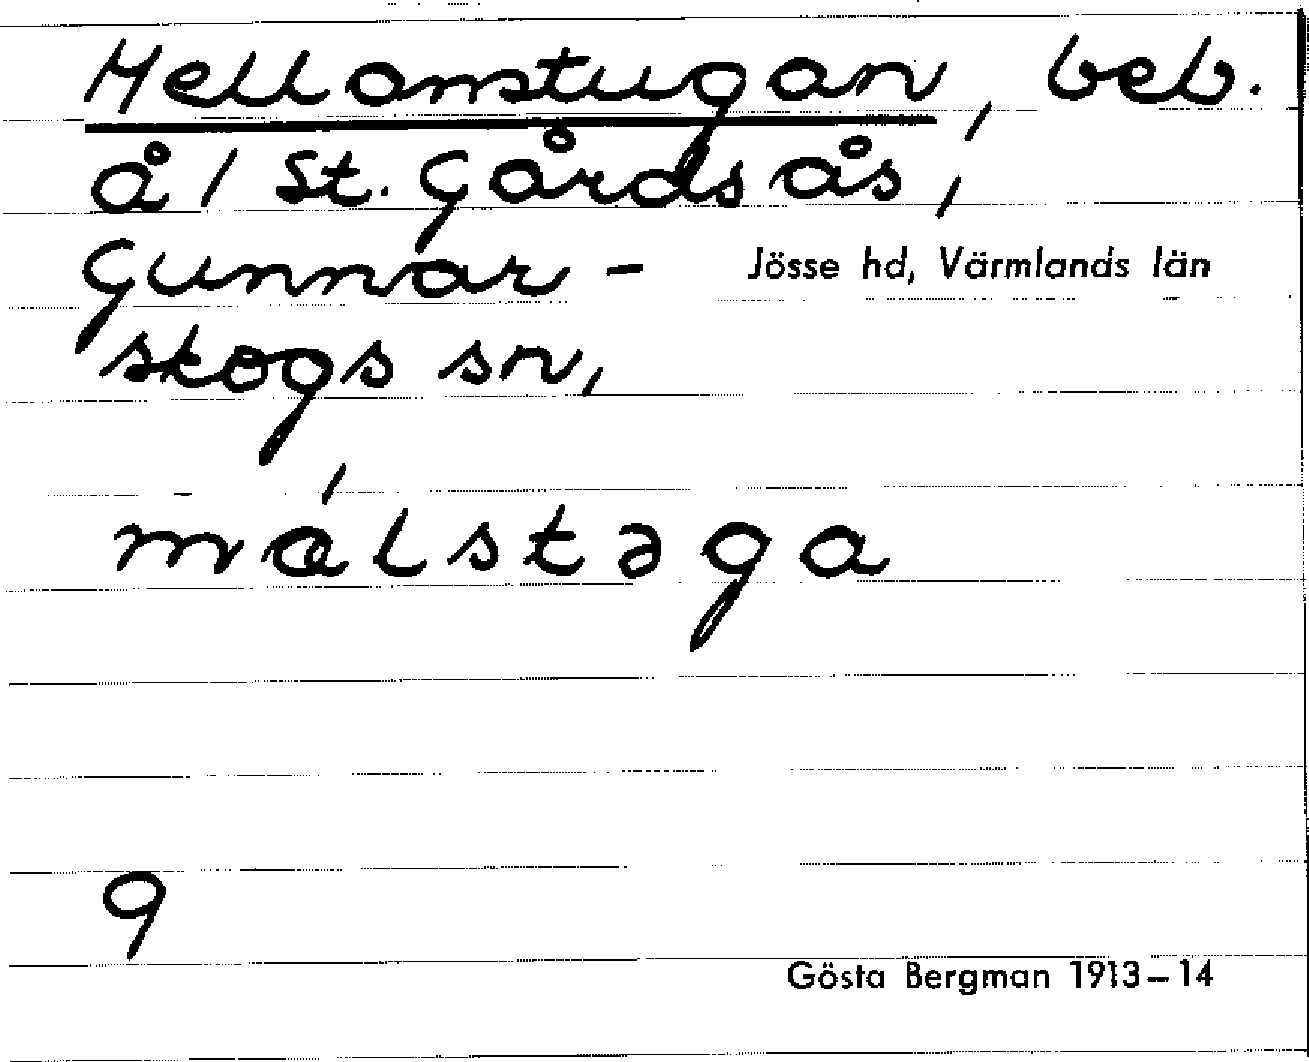 Mellanstugan, beb.
å 1 St. Gårdsås,
Gunnar- Jösse hd, Värmlands län
skogs sn,
málstəga
9
Gösta Bergman 1913–14